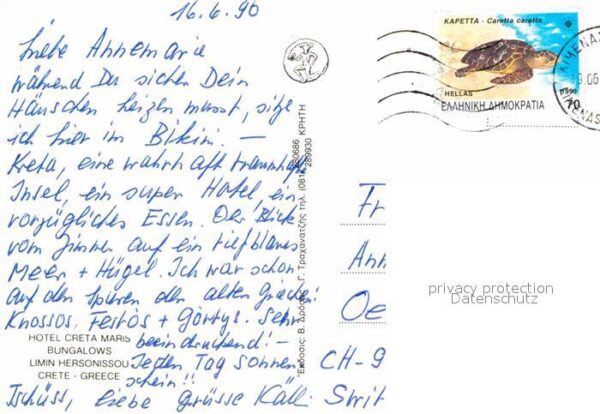 16.6.90
Liebe Annemarie
während Du sicher Dein
Häuschen heizen musst, sitze
ich hier im Bikini. —
Kreta, eine wahrhaft traumhafte
Insel, ein super Hotel, ein
vorzügliches Essen. Der Blick
vom Zimmer auf ein tiefblaues
Meer + Hügel. Ich war schon
auf den Spuren der alten Griechen!
Knossos, Festos + Gortys. Sehr
beeindruckend! –
Jeden Tag Sonnen
schein!!
Tschüss, liebe Grüsse Käti
HOTEL CRETA MARIS
BUNGALOWS
LIMIN HERSONISSOU
CRETE - GREECE
Έκδοσις: Β. Δρόσος - Γ. Τραχανατζής τηλ. (081) 280686 ΚΡΗΤΗ
289930
ΚΑΡΕΤΤΑ - Caretta caretta
HELLAS
1990
ΕΛΛΗΝΙΚΗ ΔΗΜΟΚΡΑΤΙΑ
70
Fr
Ann
Oe
CH-9
privacy protection
Datenschutz